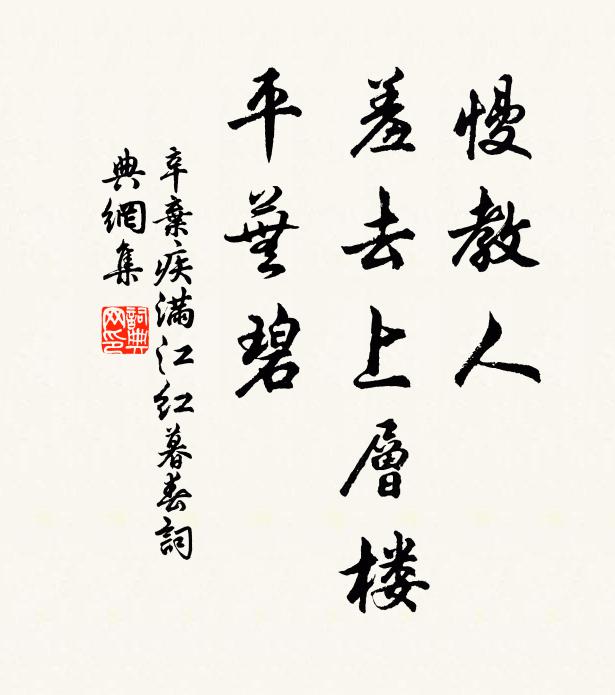 慢教人
羞去上層楼
平蕪碧
辛棄疾滿江红暮春詞
典網集
詞典
网印